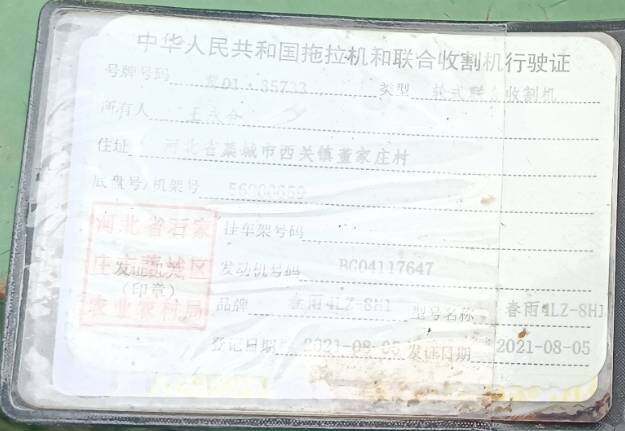 中华人民共和国拖拉机和联合收割机行驶证
号牌号码 冀01·35733 类型 轮式联合收割机
所有人
住址 河北省藁城市西关镇董家庄村
底盘号/机架号
河北省石家 挂车架号码
庄市藁城区 发动机号码 BG04117647
发证机关
(印章)
农业农村局 品牌 春雨4LZ-8H1 型号名称 春雨4LZ-8H1
登记日期 2021-08-05 发证日期 2021-08-05